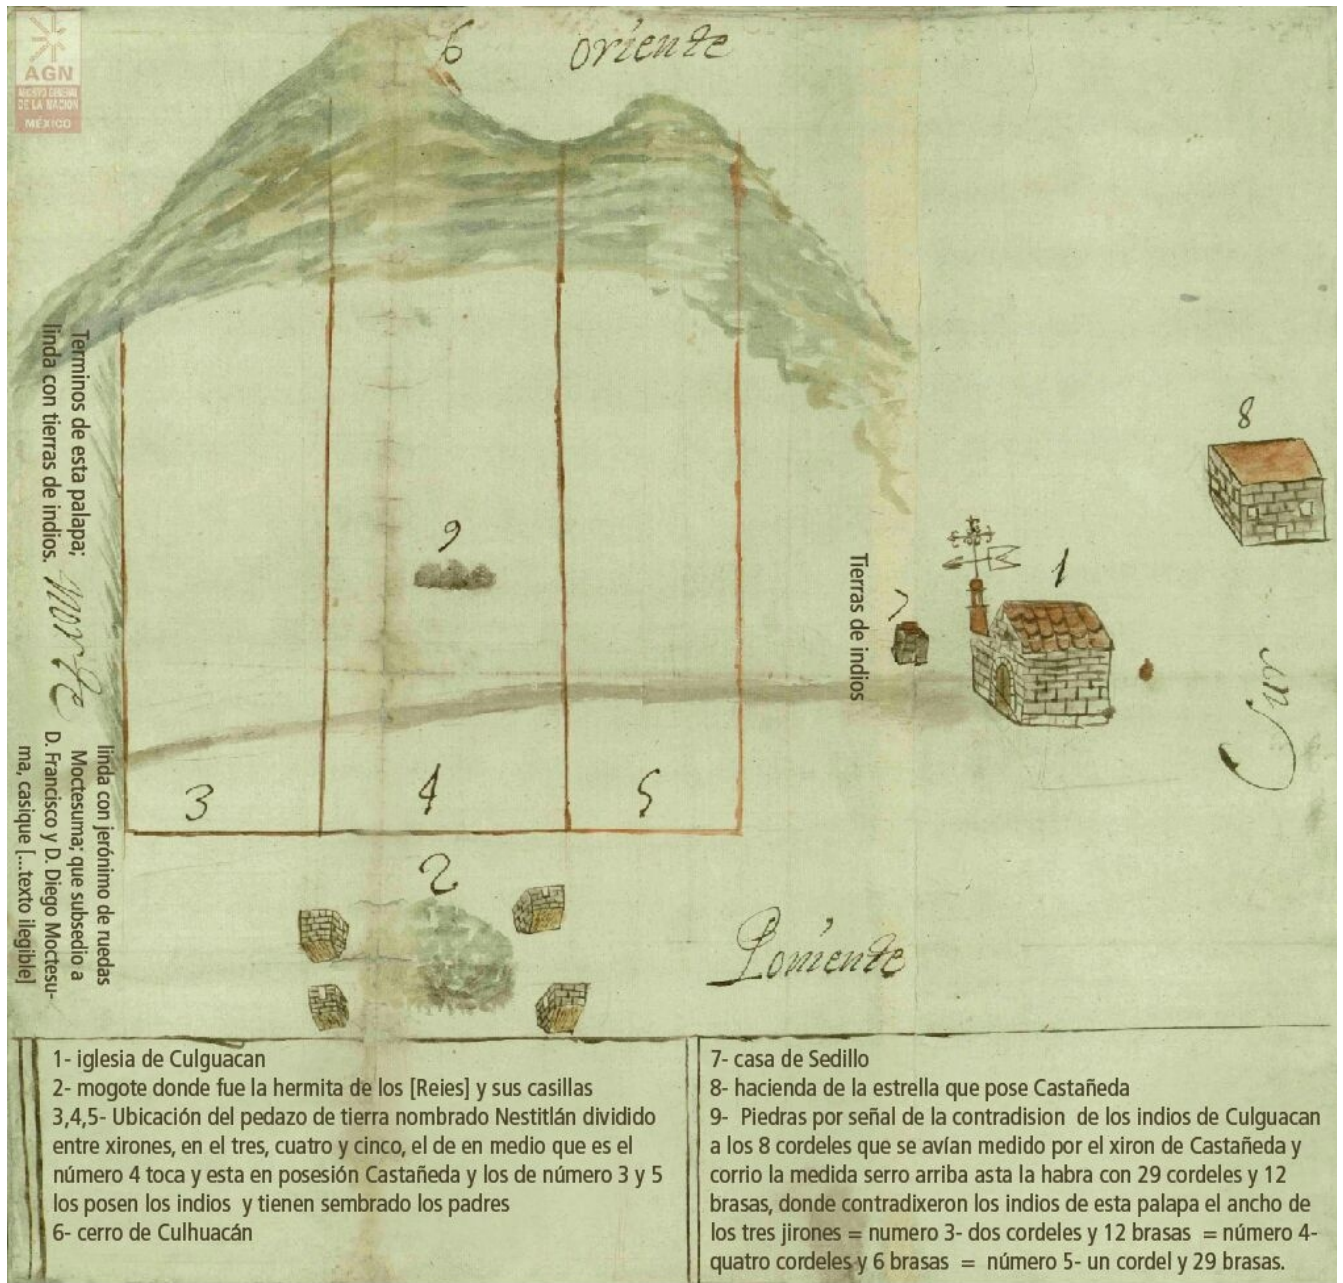 AGN
ARCHIVO GENERAL
DE LA NACION
MÉXICO
6
oriente
8
9
1
7
Terminos de esta palapa;
linda con tierras de indios.
Norte
Tierras de indios
Sur
linda con jerónimo de ruedas
Moctesuma; que subsedio a
D. Francisco y D. Diego Moctesu-
ma, casique [...texto ilegible]
3
4
5
2
Poniente
1- iglesia de Culguacan
2- mogote donde fue la hermita de los [Reies] y sus casillas
3,4,5- Ubicación del pedazo de tierra nombrado Nestitlán dividido
entre xirones, en el tres, cuatro y cinco, el de en medio que es el
número 4 toca y esta en posesión Castañeda y los de número 3 y 5
los posen los indios y tienen sembrado los padres
6- cerro de Culhuacán
7- casa de Sedillo
8- hacienda de la estrella que pose Castañeda
9- Piedras por señal de la contradision de los indios de Culguacan
a los 8 cordeles que se avían medido por el xiron de Castañeda y
corrio la medida serro arriba asta la habra con 29 cordeles y 12
brasas, donde contradixeron los indios de esta palapa el ancho de
los tres jirones = numero 3- dos cordeles y 12 brasas = número 4-
quatro cordeles y 6 brasas = número 5- un cordel y 29 brasas.